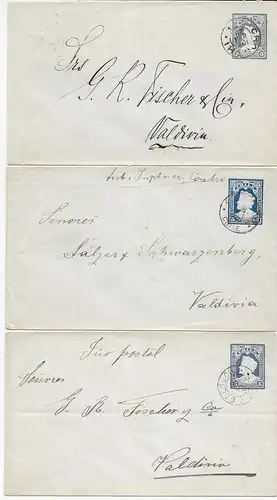 Srs
G. R. Fischer & Cia,
Valdivia
Castro
Senores
Fälzer & Schwarzenberg,
Valdivia
Giro postal
Senores
G. R. Fischer y Ca
Valdivia